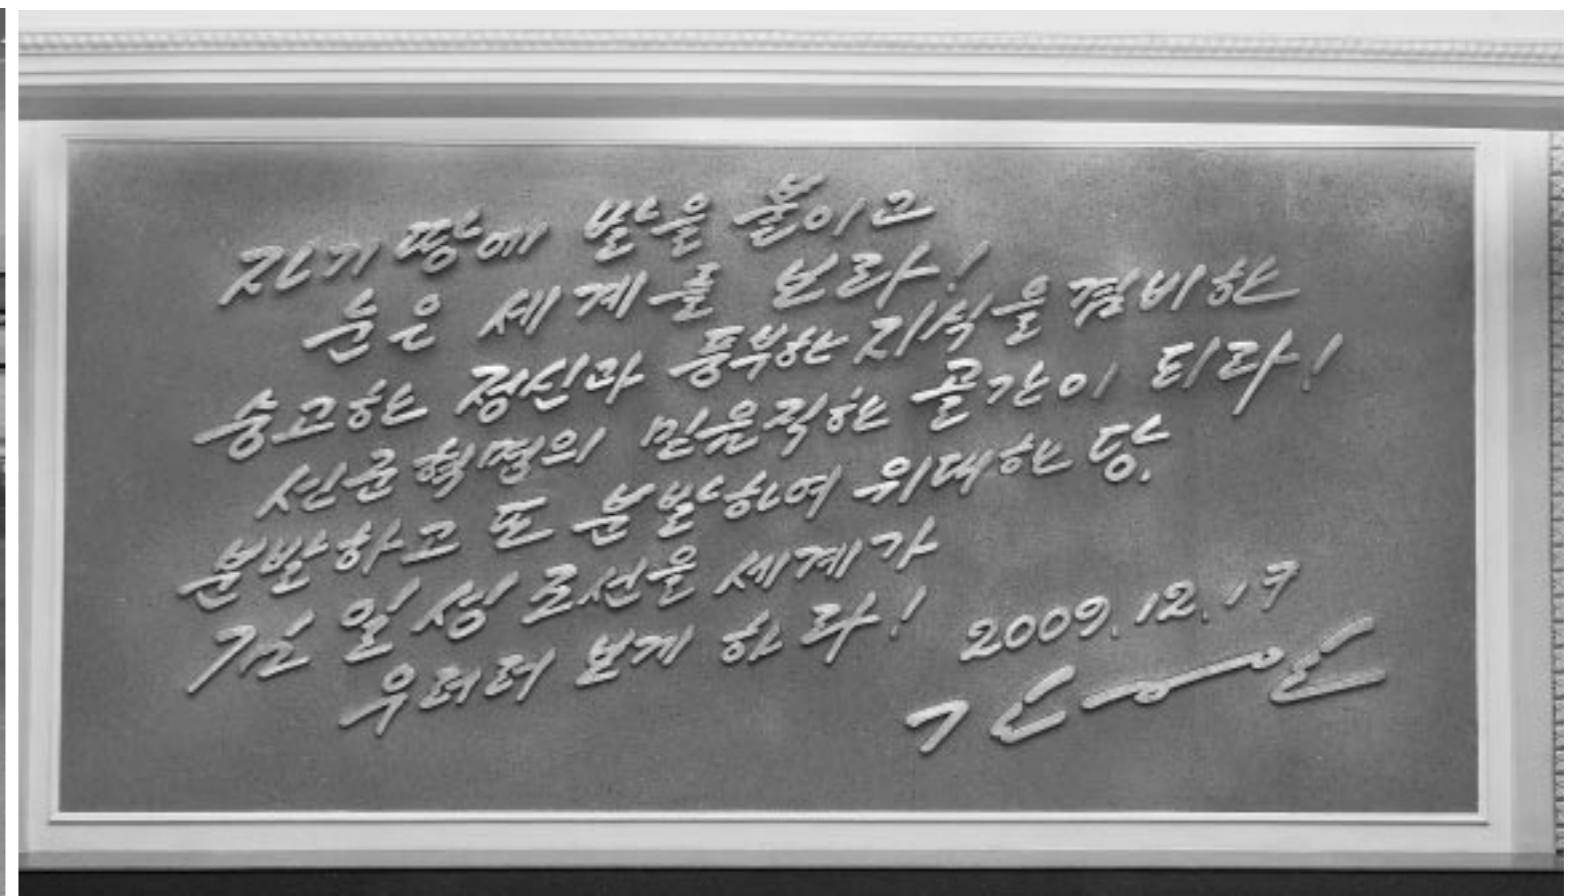 자기 땅에 발을 붙이고
눈은 세계를 보라!
숭고한 정신과 풍부한 지식을 겸비한
선군혁명의 믿음직한 골간이 되라!
분발하고 또 분발하여 위대한 당,
김일성조선을 세계가
우러러보게 하라!
2009. 12. 17
김정일